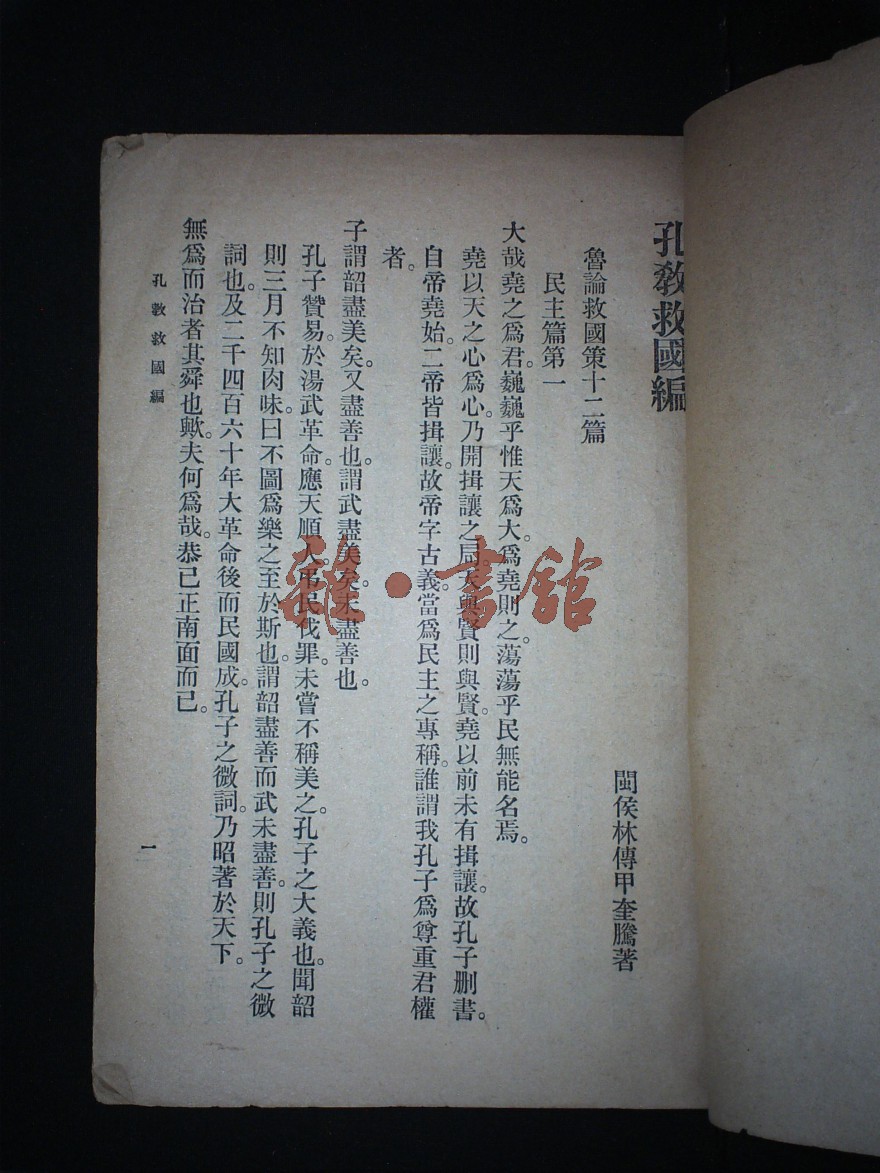 孔教救國編
閩侯林傳甲奎騰著
魯論救國策十二篇
民主篇第一
大哉堯之爲君。巍巍乎惟天爲大。爲堯則之。蕩蕩乎民無能名焉。
堯以天之心爲心。乃開揖讓之局。天與賢則與賢。堯以前未有揖讓。故孔子删書。
自帝堯始。二帝皆揖讓。故帝字古義。當爲民主之專稱。誰謂我孔子爲尊重君權
者。
子謂韶盡美矣。又盡善也。謂武盡美矣。未盡善也。
孔子贊易。於湯武革命。應天順人。弔民伐罪。未嘗不稱美之。孔子之大義也。聞韶
則三月不知肉味。曰不圖爲樂之至於斯也。謂韶盡善而武未盡善。則孔子之微
詞也。及二千四百六十年大革命後而民國成。孔子之微詞。乃昭著於天下。
無爲而治者其舜也歟。夫何爲哉。恭己正南面而已。
孔教救國編
一
雜·書館